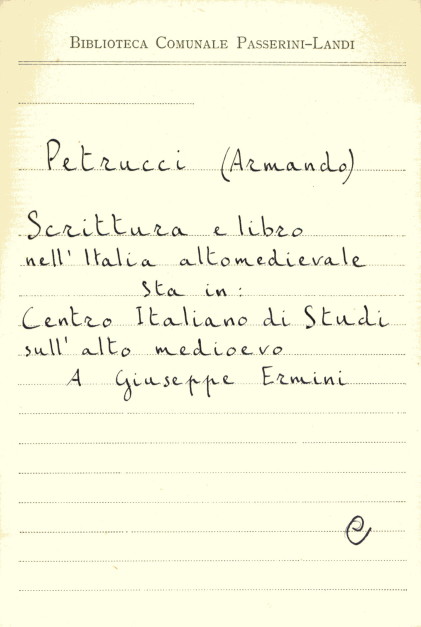 BIBLIOTECA COMUNALE PASSERINI-LANDI
Petrucci (Armando)
Scrittura e libro
nell'Italia altomedievale
Sta in:
Centro Italiano di Studi
sull'alto medioevo
A Giuseppe Ermini
e